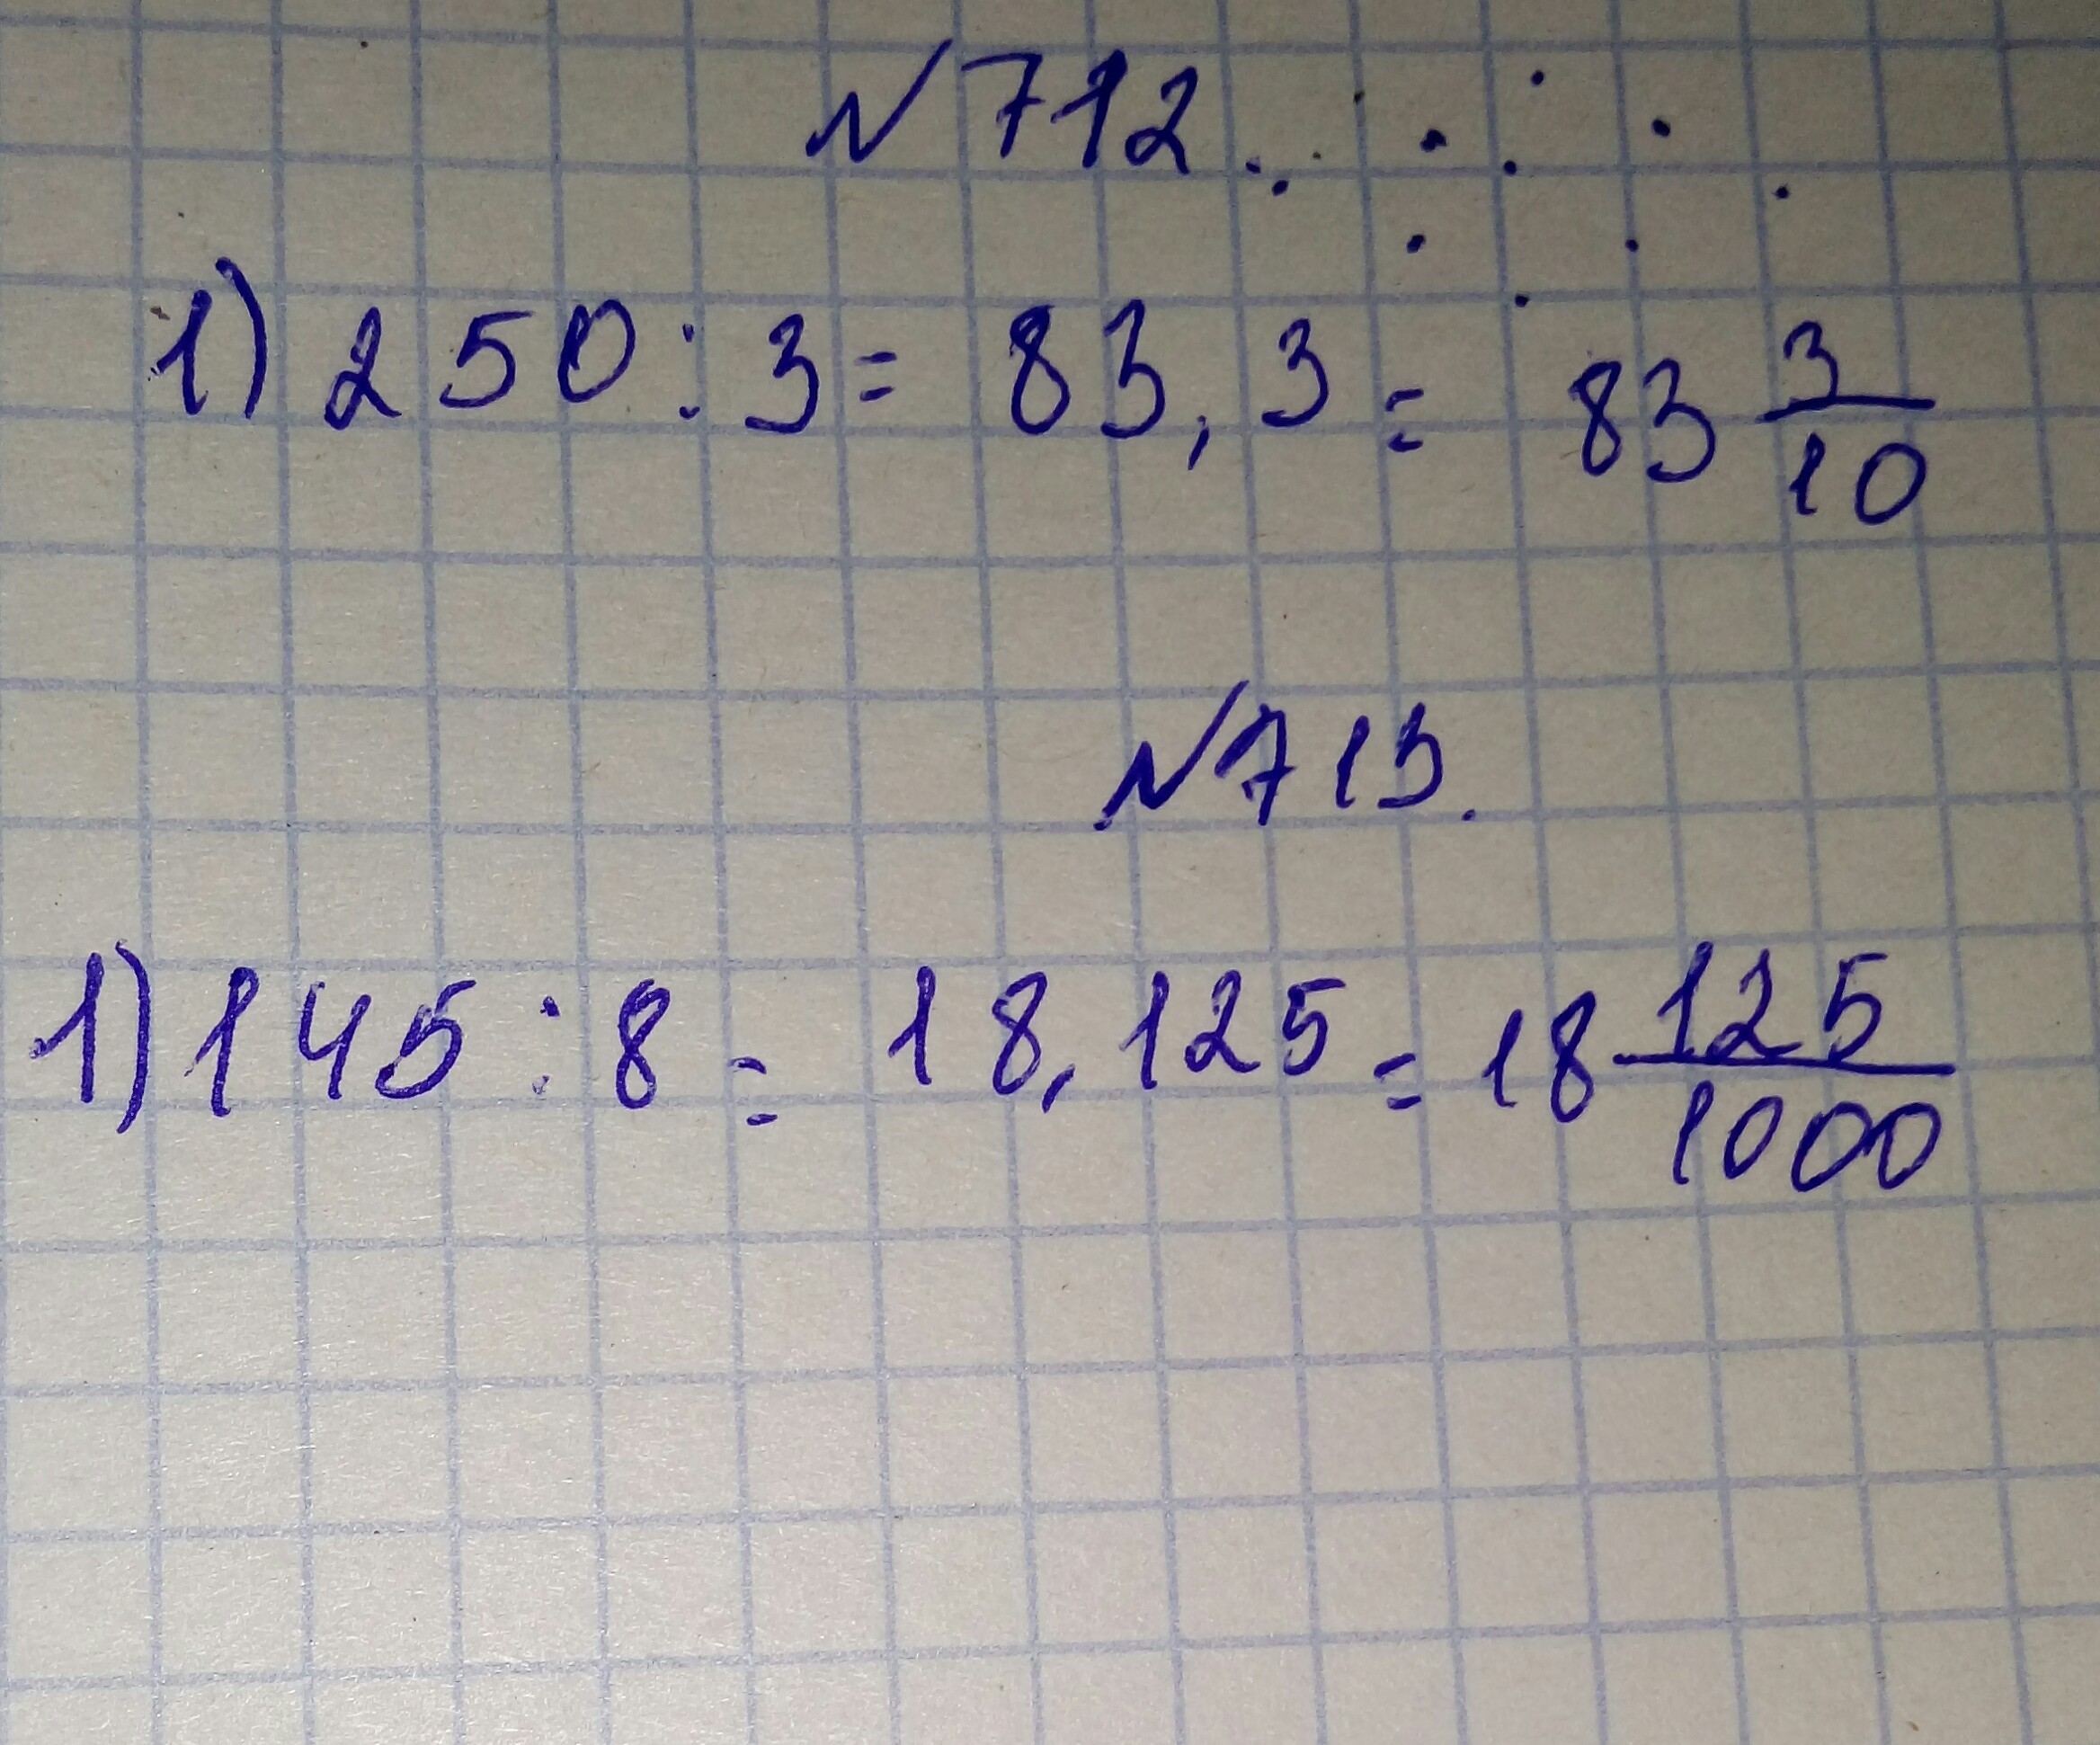 №712.
1) 250 : 3 = 83,3 = 83 3/10
№713.
1) 145 : 8 = 18,125 = 18 125/1000